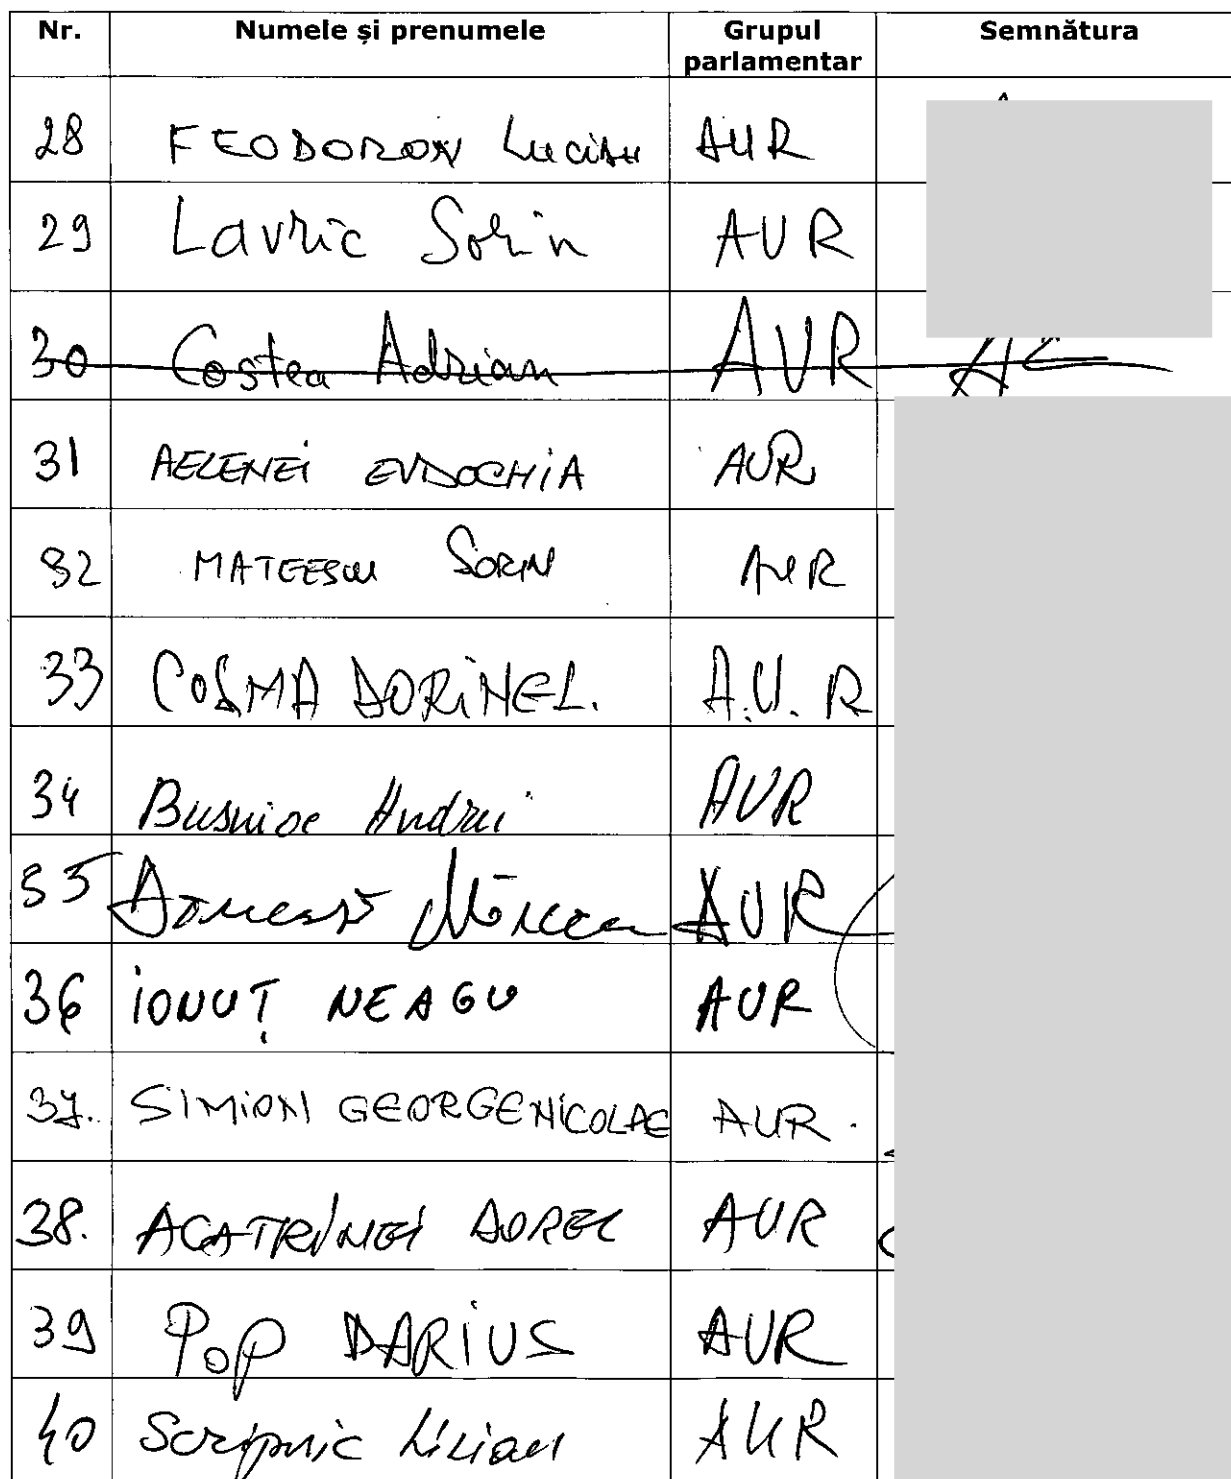 Nr. Numele și prenumele Grupul parlamentar Semnătura
28 FEODOROV Lucian AUR
29 Lavric Sorin AUR
30 Costea Adrian AUR AC
31 AELENEI EVDOCHIA AUR
32 MATEESCU SORIN AUR
33 COSMA DORINEL. A.U.R
34 Busuioc Andrei AUR
35 AUR
36 IONUȚ NEAGU AUR
37. SIMION GEORGE NICOLAE AUR.
38. ACATRINEI DOREL AUR
39 POP DARIUS AUR
40 Scripnic Lilian AUR